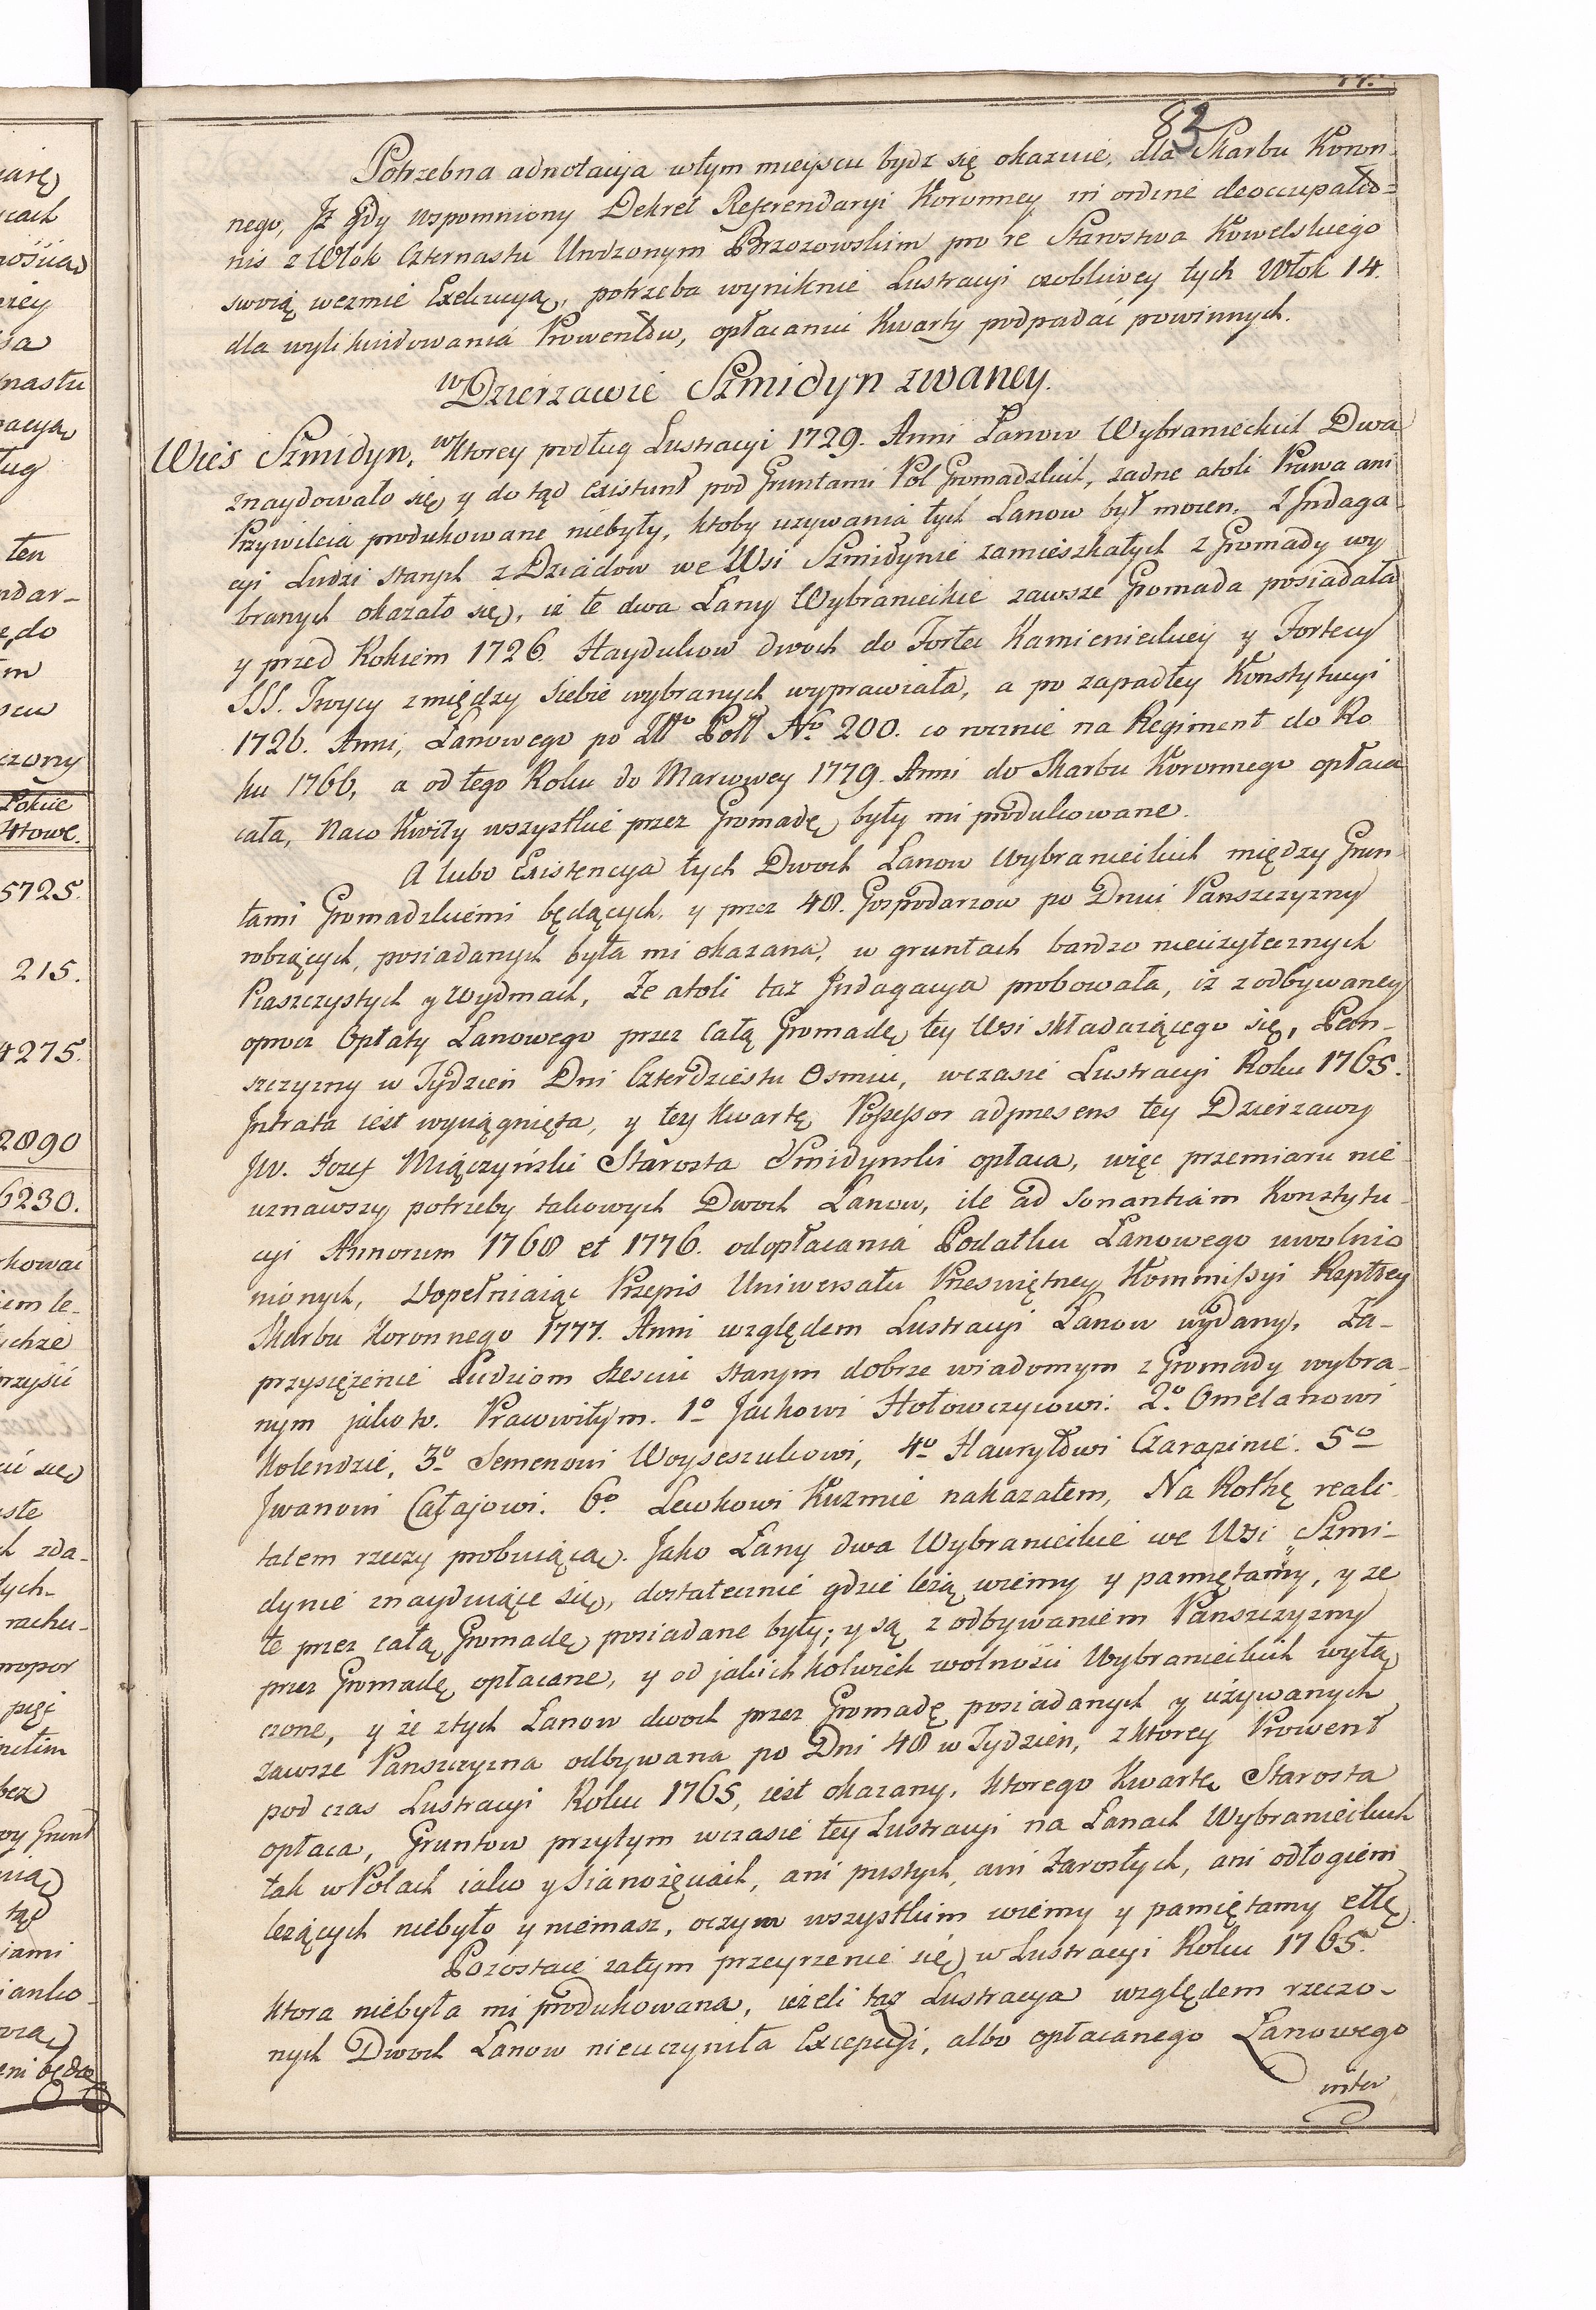 82
Potrzebna adnotacyja w tym mieyscu bydz się okazuie, dla Skarbu Koron-
nego, Jż gdy wspomniony Dekret Referendaryi Koronney in ordine deoccupatio-
nis z Włok Czternastu Urodzonym Brzozowskim pro re Starostwa Kowelskiego
swoią wezmie Exekucyą, potrzeba wyniknie Lustracyi osobliwey tych Włok 14.
dla wylikwidowania Prowentów, opłacaniu Kwarty podpadać powinnych.
w Dzierzawie Szmidyn zwaney.
Wieś Szmidyn, w ktorey podług Lustracyi 1729. Anni Łanow Wybranieckich Dwa
znaydowało się y do tąd existunt pod Gruntami Pol Gromadzkich, zadne atoli Prawa ani
Przywileia produkowane niebyły, ktoby uzywania tych Łanow był mocen. Z Jndaga-
cyi Ludzi starych z Dziadow we Wsi Szmidynie zamieszkałych z Gromady wy
branych okazało się, iż te dwa Łany Wybranieckie zawsze Gromada posiadała
y przed Rokiem 1726. Haydukow dwoch do Fortec Kamienieckiey y Fortecy
SSS. Troycy z między siebie wybranych wyprawiała, a po zapadłey Konstytucyi
1726. Anni, Łanowego po Zł Poll No 200. co rocznie na Regiment do Ro
ku 1766, a od tego Roku do Marcowey 1779. Anni do Skarbu Koronnego opłaca
cała, Naco Kwity wszystkie przez Gromadę były mi produkowane.
A lubo Existencya tych Dwoch Łanow Wybranieckich między Grun-
tami Gromadzkiemi będących, y przez 48. Gospodarzow po Dniu Panszczyzny
robiących, posiadanych była mi okazana, w gruntach bardzo nieużytecznych
Piaszczystych y Wydmach, Że atoli taz Jndagacya probowała, iż z odbywaney
oprocz Opłaty Łanowego przez Całą Gromadę tey Wsi składaiącego się, Pan-
szczyzny w Tydzień Dni Czterdziestu Osmiu, wczasie Lustracyi Roku 1765.
Jntrata iest wyciągnięta, y tey Kwartę Possessor adpraesens tey Dzierzawy
Jw. Jozef Miączyński Starosta Smidynski opłaca, więc przemiaru nie-
uznawszy potrzeby takowych Dwoch Łanow, ile ad sonantiam Konstytu-
cyi Annorum 1768 et 1776. od opłacania Podatku Łanowego uwolnio
nionych, Dopełniaiąc Przepis Uniwersału Przeświętney Kommissyi Rzpltey
Skarbu Koronnego 1777. Anni względem Lustracyi Łanow wydany. Za-
przysiężenie Ludziom sześciu starym dobrze wiadomym z Gromady wybra-
nym jako to. Pracowitym. 1o Jackowi Hołowczycowi. 2o Omelanowi
Kolendzie, 3o Semenowi Woyseszukowi, 4o Hauryłowi Czarapinie. 5o
Jwanowi Całajowi. 6o Lewkowi Kuzmie nakazałem, Na Rothę reali-
tatem rzeczy probuiącą. Jako Łany dwa Wybranieckie we Wsi Szmi-
dynie znayduiące się, dostatecznie gdzie leżą wiemy y pamiętamy, y ze
te przez całą Gromadę posiadane były; y są z odbywaniem Panszczyzny
przez Gromadę opłacane, y od jakichkolwiek wolności Wybranieckich wyłą
czone, y że z tych Łanow dwoch przez Gromadę posiadanych y używanych
zawsze Panszczyzna odbywana po Dni 48 w Tydzien, z ktorey Prowent
pod czas Lustracyi Roku 1765, iest okazany, ktorego Kwartę Starosta
opłaca, Gruntow przytym wczasie tey Lustracyi na Łanach Wybranieckich
tak w Polach iako y Sianożęciach, ani pustych, ani Zarosłych, ani odłogiem
leżących niebyło y niemasz, o czym wszystkim wiemy y pamiętamy ettc
Pozostaie zatym przeyrzenie się w Lustracyi Roku 1765.
ktora niebyła mi produkowana, ieżeli taż Lustracya względem rzeczo-
nych Dwoch Łanow nieuczyniła Excepcyi, albo opłacanego Łanowego
inter
5725.
215.
4275.
2890
6230.